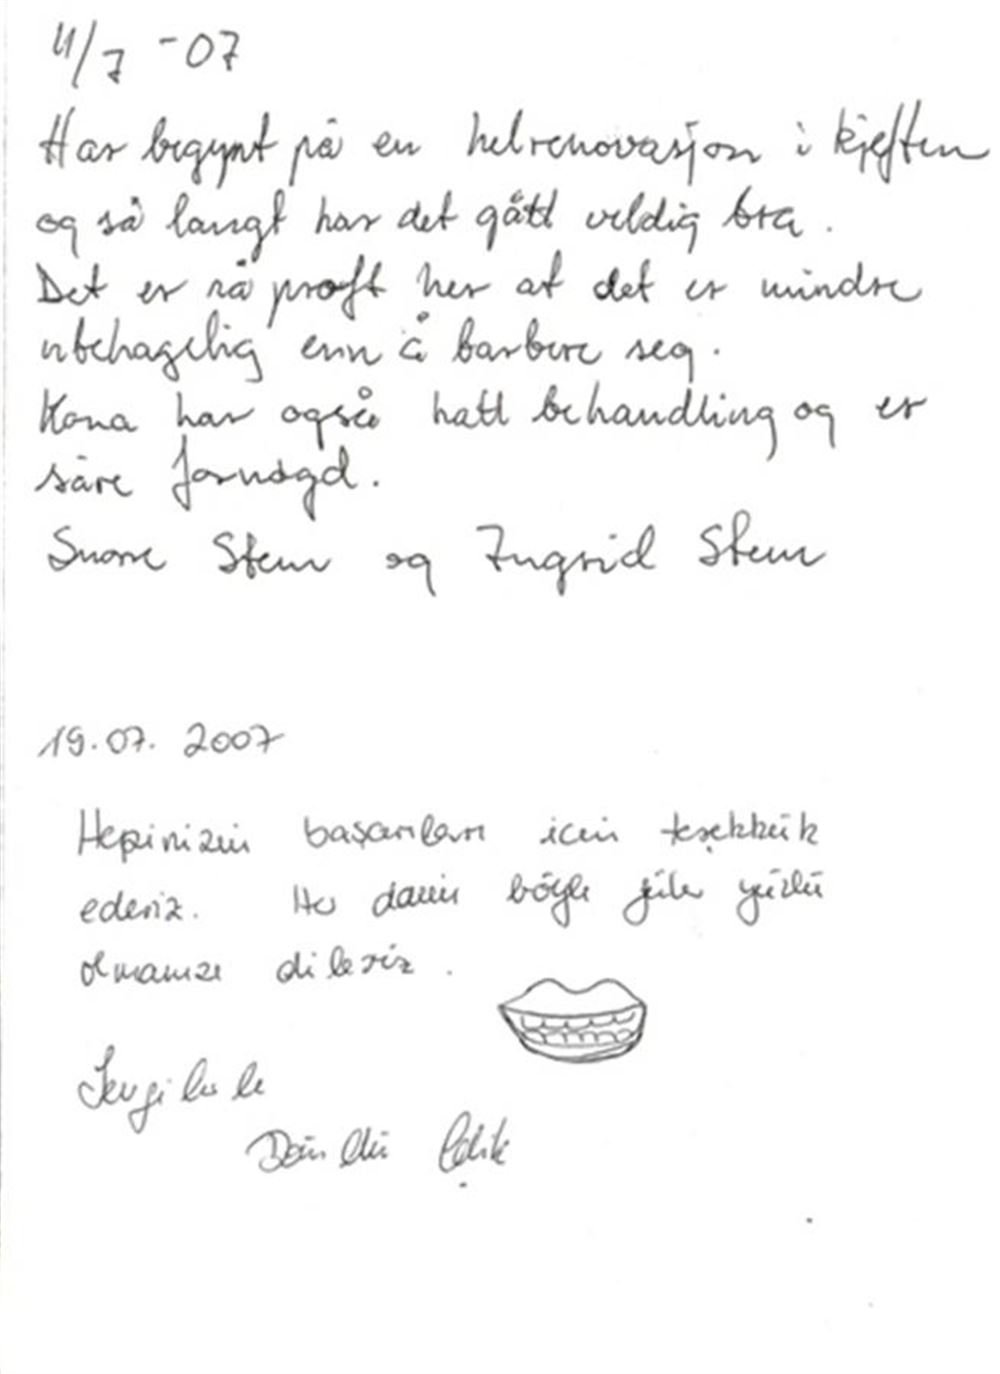 11/7 -07
Har begynt på en helrenovasjon i kjeften
og så langt har det gått veldig bra.
Det er så proft her at det er mindre
ubehagelig enn å barbere seg.
Kona har også hatt behandling og er
såre fornøgd.
Snorre Steen og Ingrid Steen
19.07.2007
Hepinizin başarıları icin teşekkük
ederiz. Her daim böyle güler yüzlü
olmanızı dileriz.
Sevgilerle
Döndü